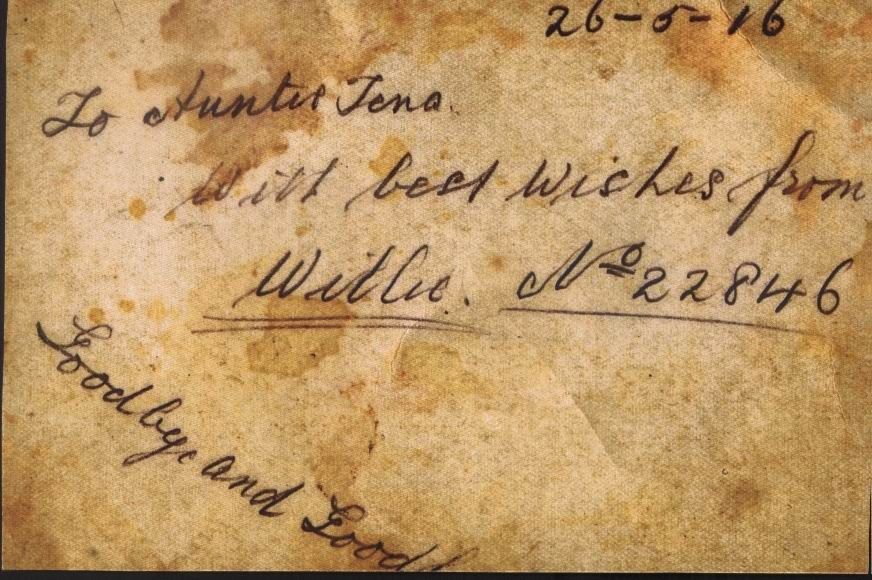 26-5-16
To Auntie Tena.
With best Wishes from
Willie. Nº 22846
Goodbye and Good